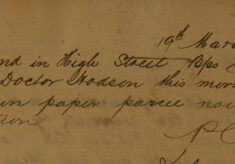 19th Mar
nd in High Street Bps
Doctor Hodson this mor
in paper parcel
P.C